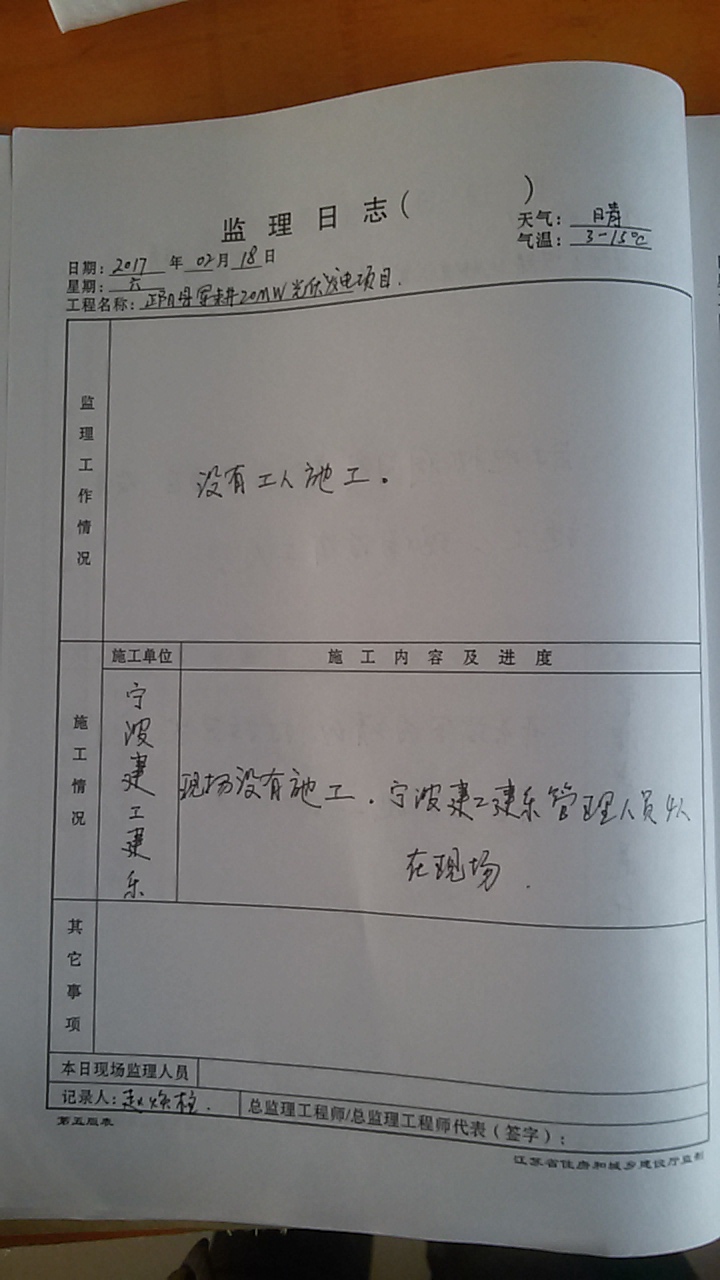 监理日志（ ）
天气：晴
气温：3-15℃
日期：2017年02月18日
星期：六
工程名称：正阳县军耕20MW光伏发电项目.
监理工作情况
没有工人施工。
施工情况
施工单位
施工内容及进度
宁波建工建乐
现场没有施工.宁波建工建乐管理人员4人
在现场.
其它事项
本日现场监理人员
记录人：赵焕柱.
总监理工程师/总监理工程师代表（签字）：
第五版表
江苏省住房和城乡建设厅监制